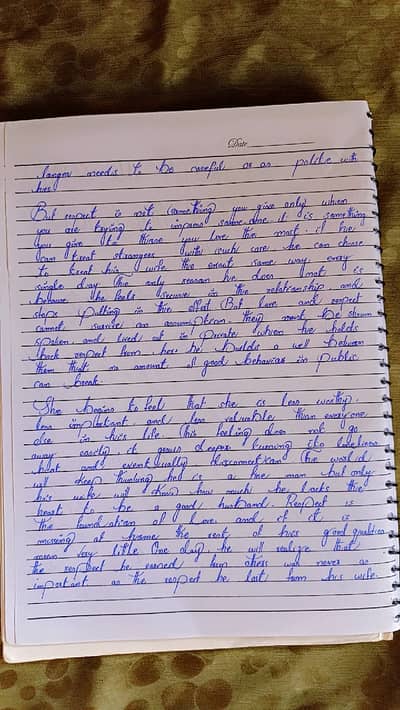 Date
longer needs to be careful or as polite with
her.
But respect is not something you give only when
you are trying to impress someone it is something
you give to those you love the most. if he
can treat strangers with such care he can choose
to treat his wife the exact same way every
single day the only reason he does not is
because he feels secure in the relationship and
stops putting in the effort But love and respect
cannot survive on assumption they must be shown
spoken and lived out in private when he holds
back respect from her he builds a wall between
them that no amount of good behavior in public
can break.
She begins to feel that she is less worthy.
less important and less valuable than everyone
else in his life this feeling does not go
away easily. it grows deeper turning into loneliness
hurt and eventually disconnection the world
will keep thinking he is a fine man but only
his wife will know how much he lacks the
heart to be a good husband. Respect is
the foundation of love and if it is
missing at home the rest of his good qualities
mean very little One day he will realize that
the respect he earned from others was never as
important as the respect he lost from his wife.